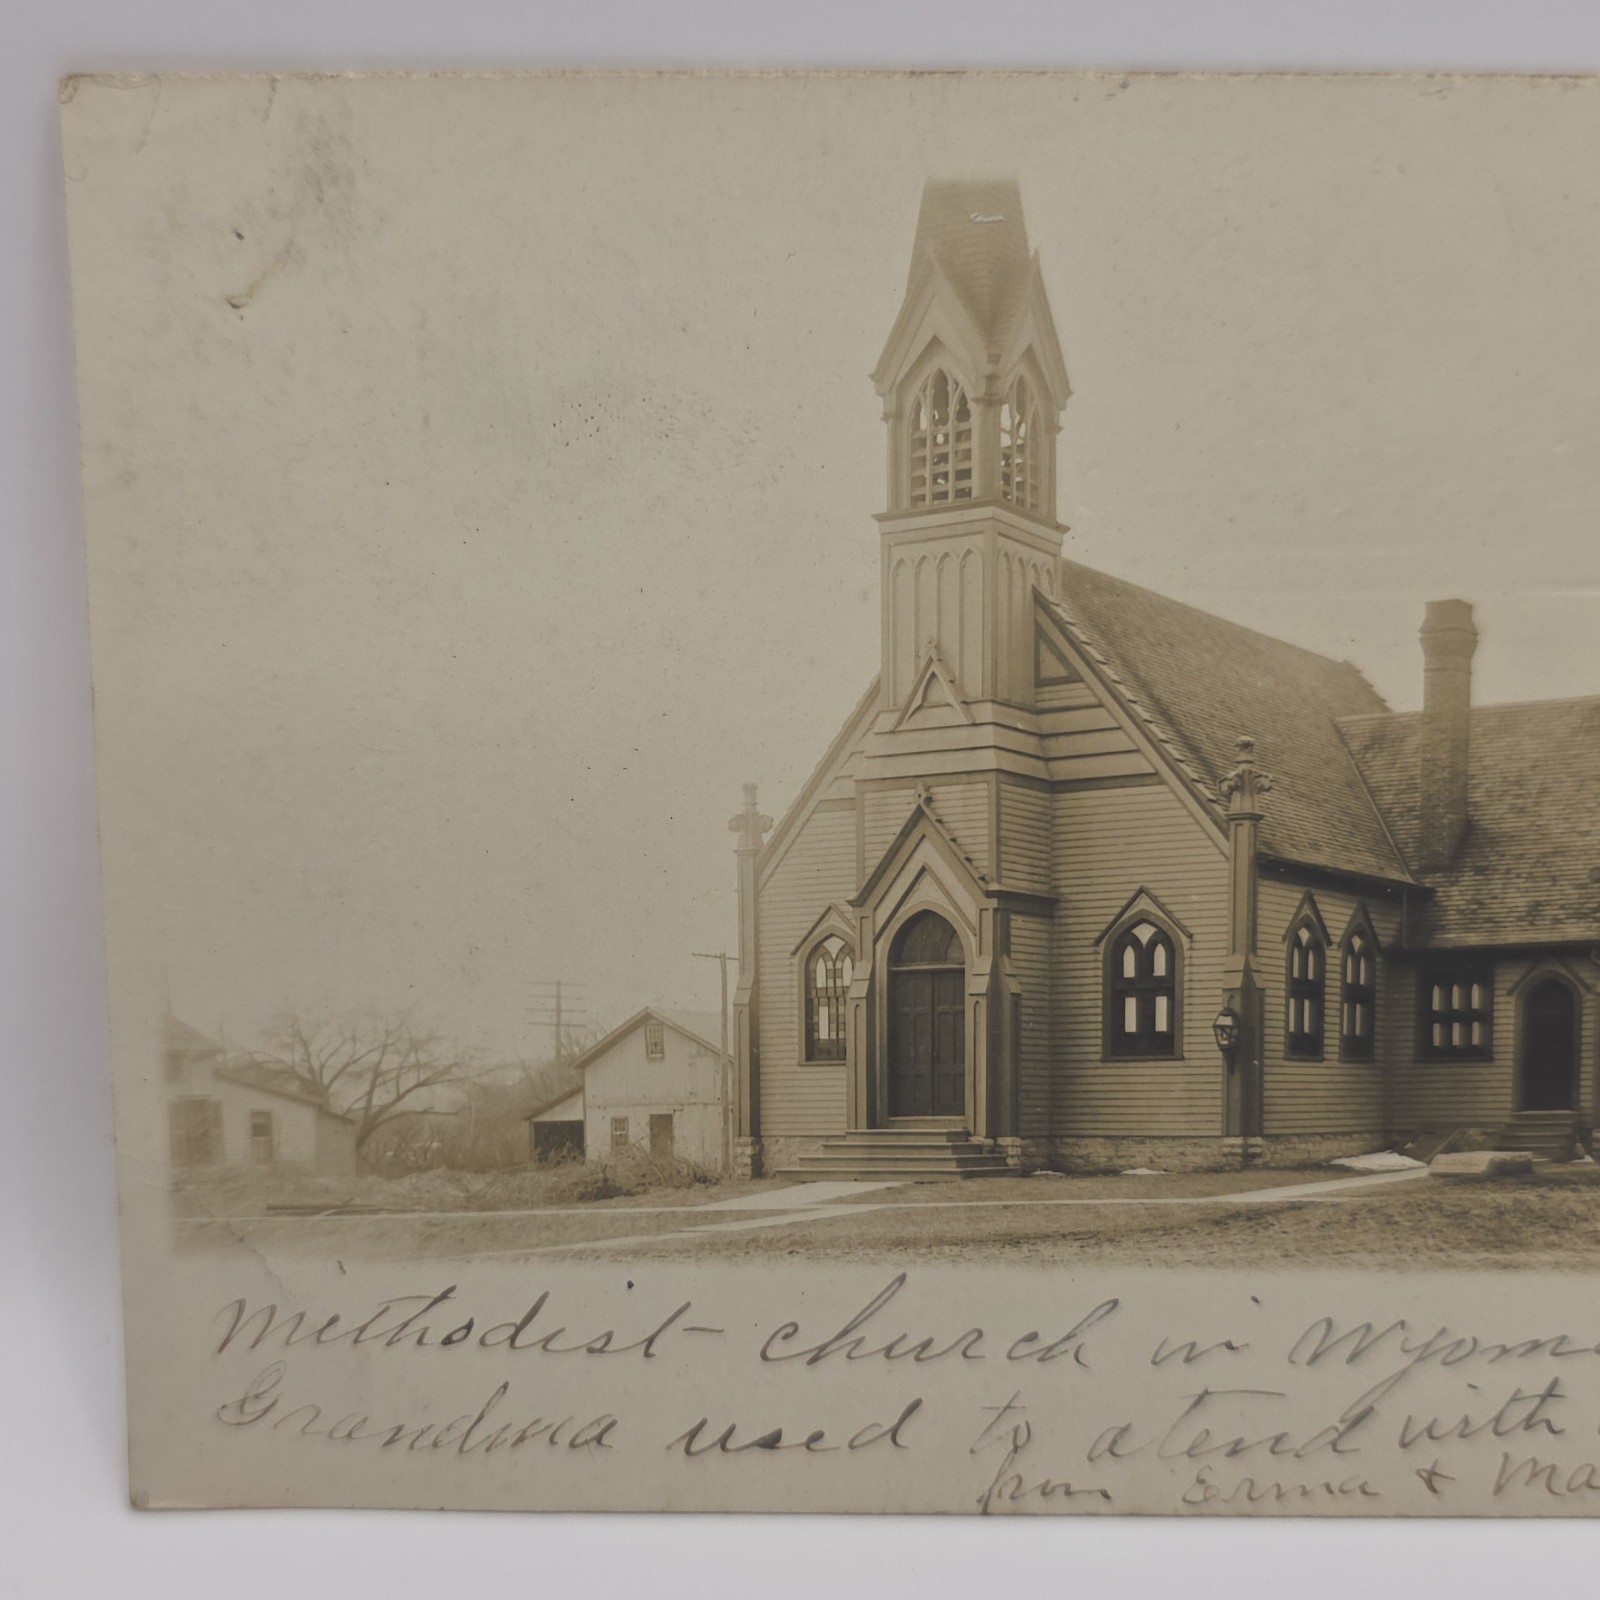 Methodist church in Wyom
Grandma used to atend with
from Erma & Ma